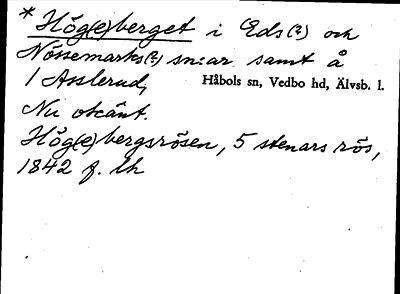 * Hög(e)berget i Eds(?) och
Nössemarks(?) sn:ar samt å
1 Asslerud,
Håbols sn, Vedbo hd, Älvsb. l.
Nu okänt.
Hög(e)bergsrösen, 5 stenars rös,
1842 f. lh